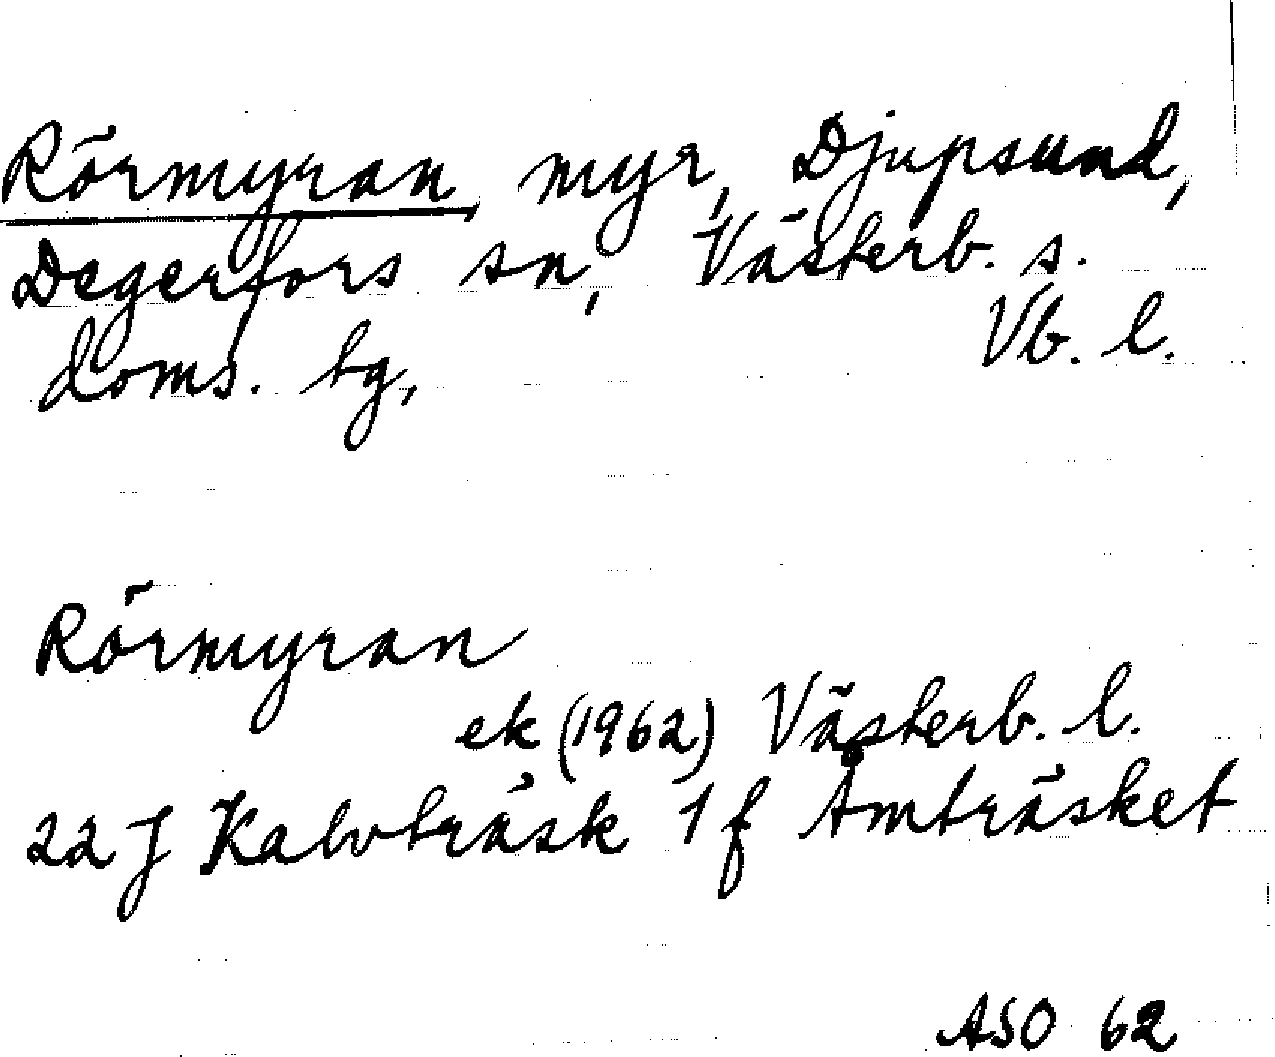 Rörmyran, myr, Djupsund,
Degerfors sn, Västerb. s.
doms. tg, Vb. l.
Rörmyran
ek (1962) Västerb. l.
22 J Kalvträsk 1 f Åmträsket
ASO 62